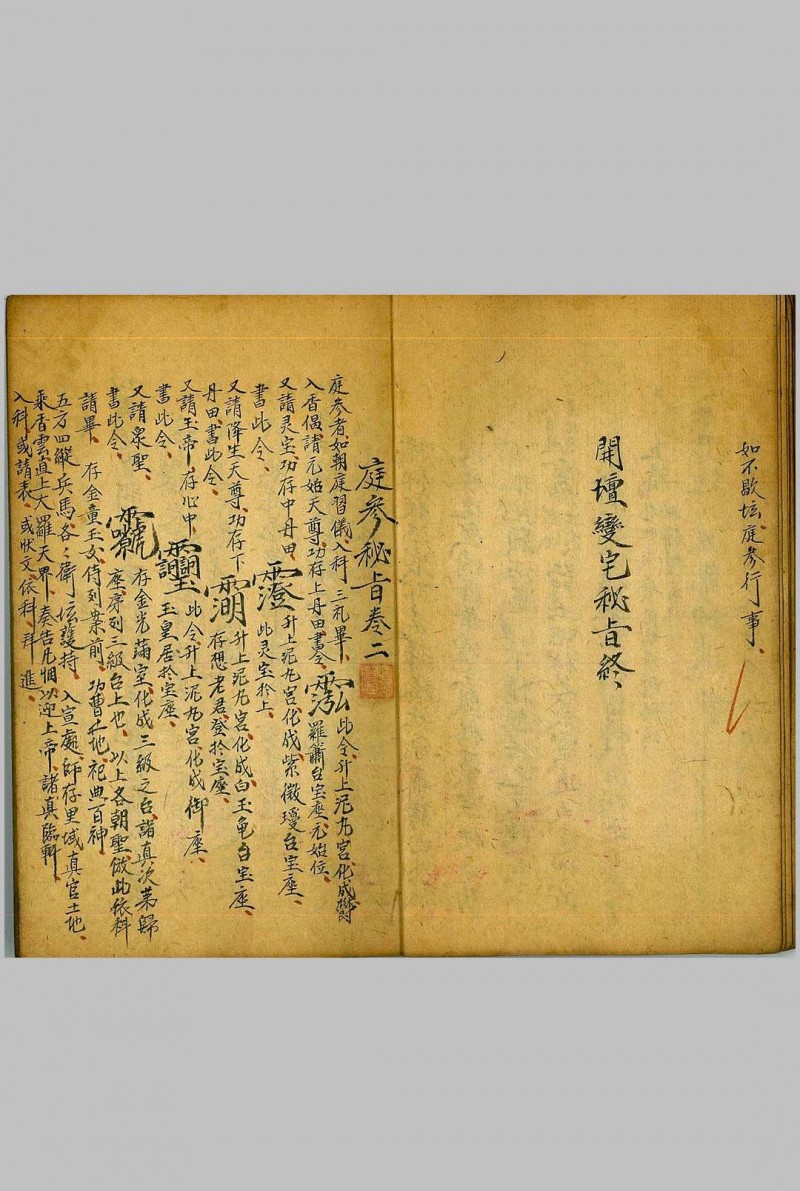 如不歇坛、庭參行事、
開壇變宅秘旨終、
庭參秘旨卷二
庭參者如朝庭習儀、入科三礼畢、
入香偈、請元始天尊、功存上丹田、書令、
此令、升上泥丸宮、化成鬱
羅蕭台宝座、元始位、
又請灵宝、功存中丹田、
書此令、
升上泥丸宮、化成紫微瓊台宝座、
此灵宝於上、
又請降生天尊、功存下
丹田、書此令、
升上泥丸宮、化成白玉龟台宝座、
存想老君、登於宝座、
又請玉帝、存心中、
書此令、
此令、升上泥丸宮、化成御座、
玉皇居於宝座、
又請衆聖、
書此令、
存金光滿室、化成三級之台、諸真次第歸
座、序列三級台上也、以上各朝聖、倣此依科
請畢、存金童玉女、侍列案前、功曹土地、祀典百神、
五方四縱兵馬、各々衛坛護持、入宣處、師存里域真官土地、
乘香雲、直上大羅天界、奏告凡悃、以迎上帝、諸真臨軒、
入科或請表、或狀文、依科拜進、